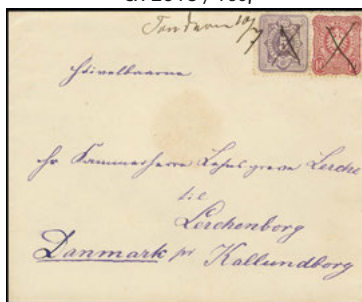 Tondern 10/7
Høivelbaarne
Hr Kammerherre Lehnsgreve Lerche
til
Lerchenborg
Danmark pr Kallundborg